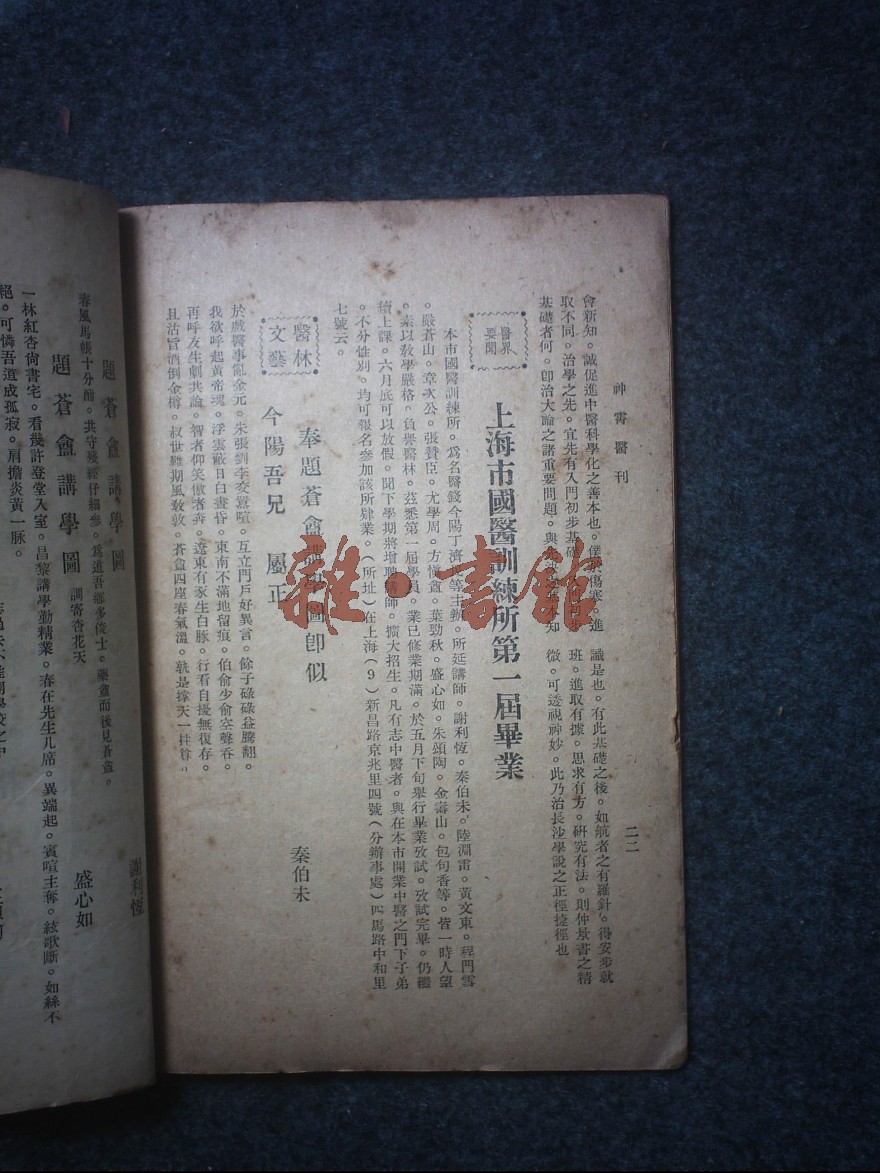 神 醫刊
二二
會新知。誠促進中醫科學化之善本也。僕 傷寒。進
取不同。治學之先。宜先有入門初步基礎 步
基礎者何。卽治大論之諸重要問題。與先決 知
識是也。有此基礎之後。如航者之有羅針。得安步就
班。進取有據。思求有方。硏究有法。則仲景書之精
微。可透視神妙。此乃治長沙學說之正徑捷徑也
醫界
要聞
上海市國醫訓練所第一屆畢業
本市國醫訓練所。爲名醫錢今陽丁濟 等主辦。所延講師。謝利恆。秦伯未。陸淵雷。黃文東。程門雪
。嚴蒼山。章次公。張贊臣。尤學周。方愼盦。葉勁秋。盛心如。朱頌陶。金壽山。包句香等。皆一時人望
。素以敎學嚴格。負譽醫林。茲悉第一屆學員。業已修業期滿。於五月下旬舉行畢業攷試。攷試完畢。仍繼
續上課。六月底可以放假。聞下學期將增聘講師。擴大招生。凡有志中醫者。與在本市開業中醫之門下子弟
。不分性別。均可報名參加該所肄業。(所址)在上海(9)新昌路京兆里四號(分辦事處)四馬路中和里
七號云。
醫林
文藝
奉題蒼盦講學圖卽似
今陽吾兄 屬正
秦伯未
於戲醫事亂金元。朱張劉李交囂喧。互立門戶好異言。餘子碌碌益騰翻。
我欲呼起黃帝魂。浮雲蔽日白晝昏。東南不滿地留痕。伯俞少俞空聲吞。
再呼友生劇共論。智者仰笑傲者奔。遼東有豕生白豚。行看自擾無復存。
且沽旨酒倒金樽。叔世難期風敎敦。蒼盦四座春氣溫。孰是撑天一柱尊。
題蒼盦講學圖
謝利恆
春風馬帳十分酣。共守殘經仔細參。爲道吾鄉多俊士。藥盦而後見蒼盦。
題蒼盦講學圖
調寄杏花天
盛心如
一林紅杏尙書宅。看幾許登堂入室。昌黎講學勤精業。春在先生几席。異端起。賓喧主奪。絃歌斷。如絲不
絕。可憐吾道成孤寂。肩擔炎黃一脈。
雜·書館